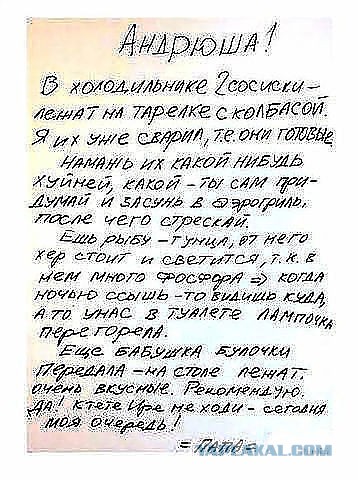 Андрюша!
В холодильнике 2 сосиски –
лежат на тарелке с колбасой.
Я их уже сварил, т.е. они готовые
намажь их какой нибудь
хуйней, какой – ты сам при-
думай и засунь в аэрогриль,
после чего стрескай.
Ешь рыбу – тунца, от него
хер стоит и светится, т.к. в
нем много фосфора => когда
ночью ссышь – то видишь куда,
а то у нас в туалете лампочка
перегорела.
Еще бабушка булочки
передала – на столе лежат.
очень вкусные. Рекомендую.
Да! К тете Ире не ходи – сегодня
моя очередь!
= ПАПА =